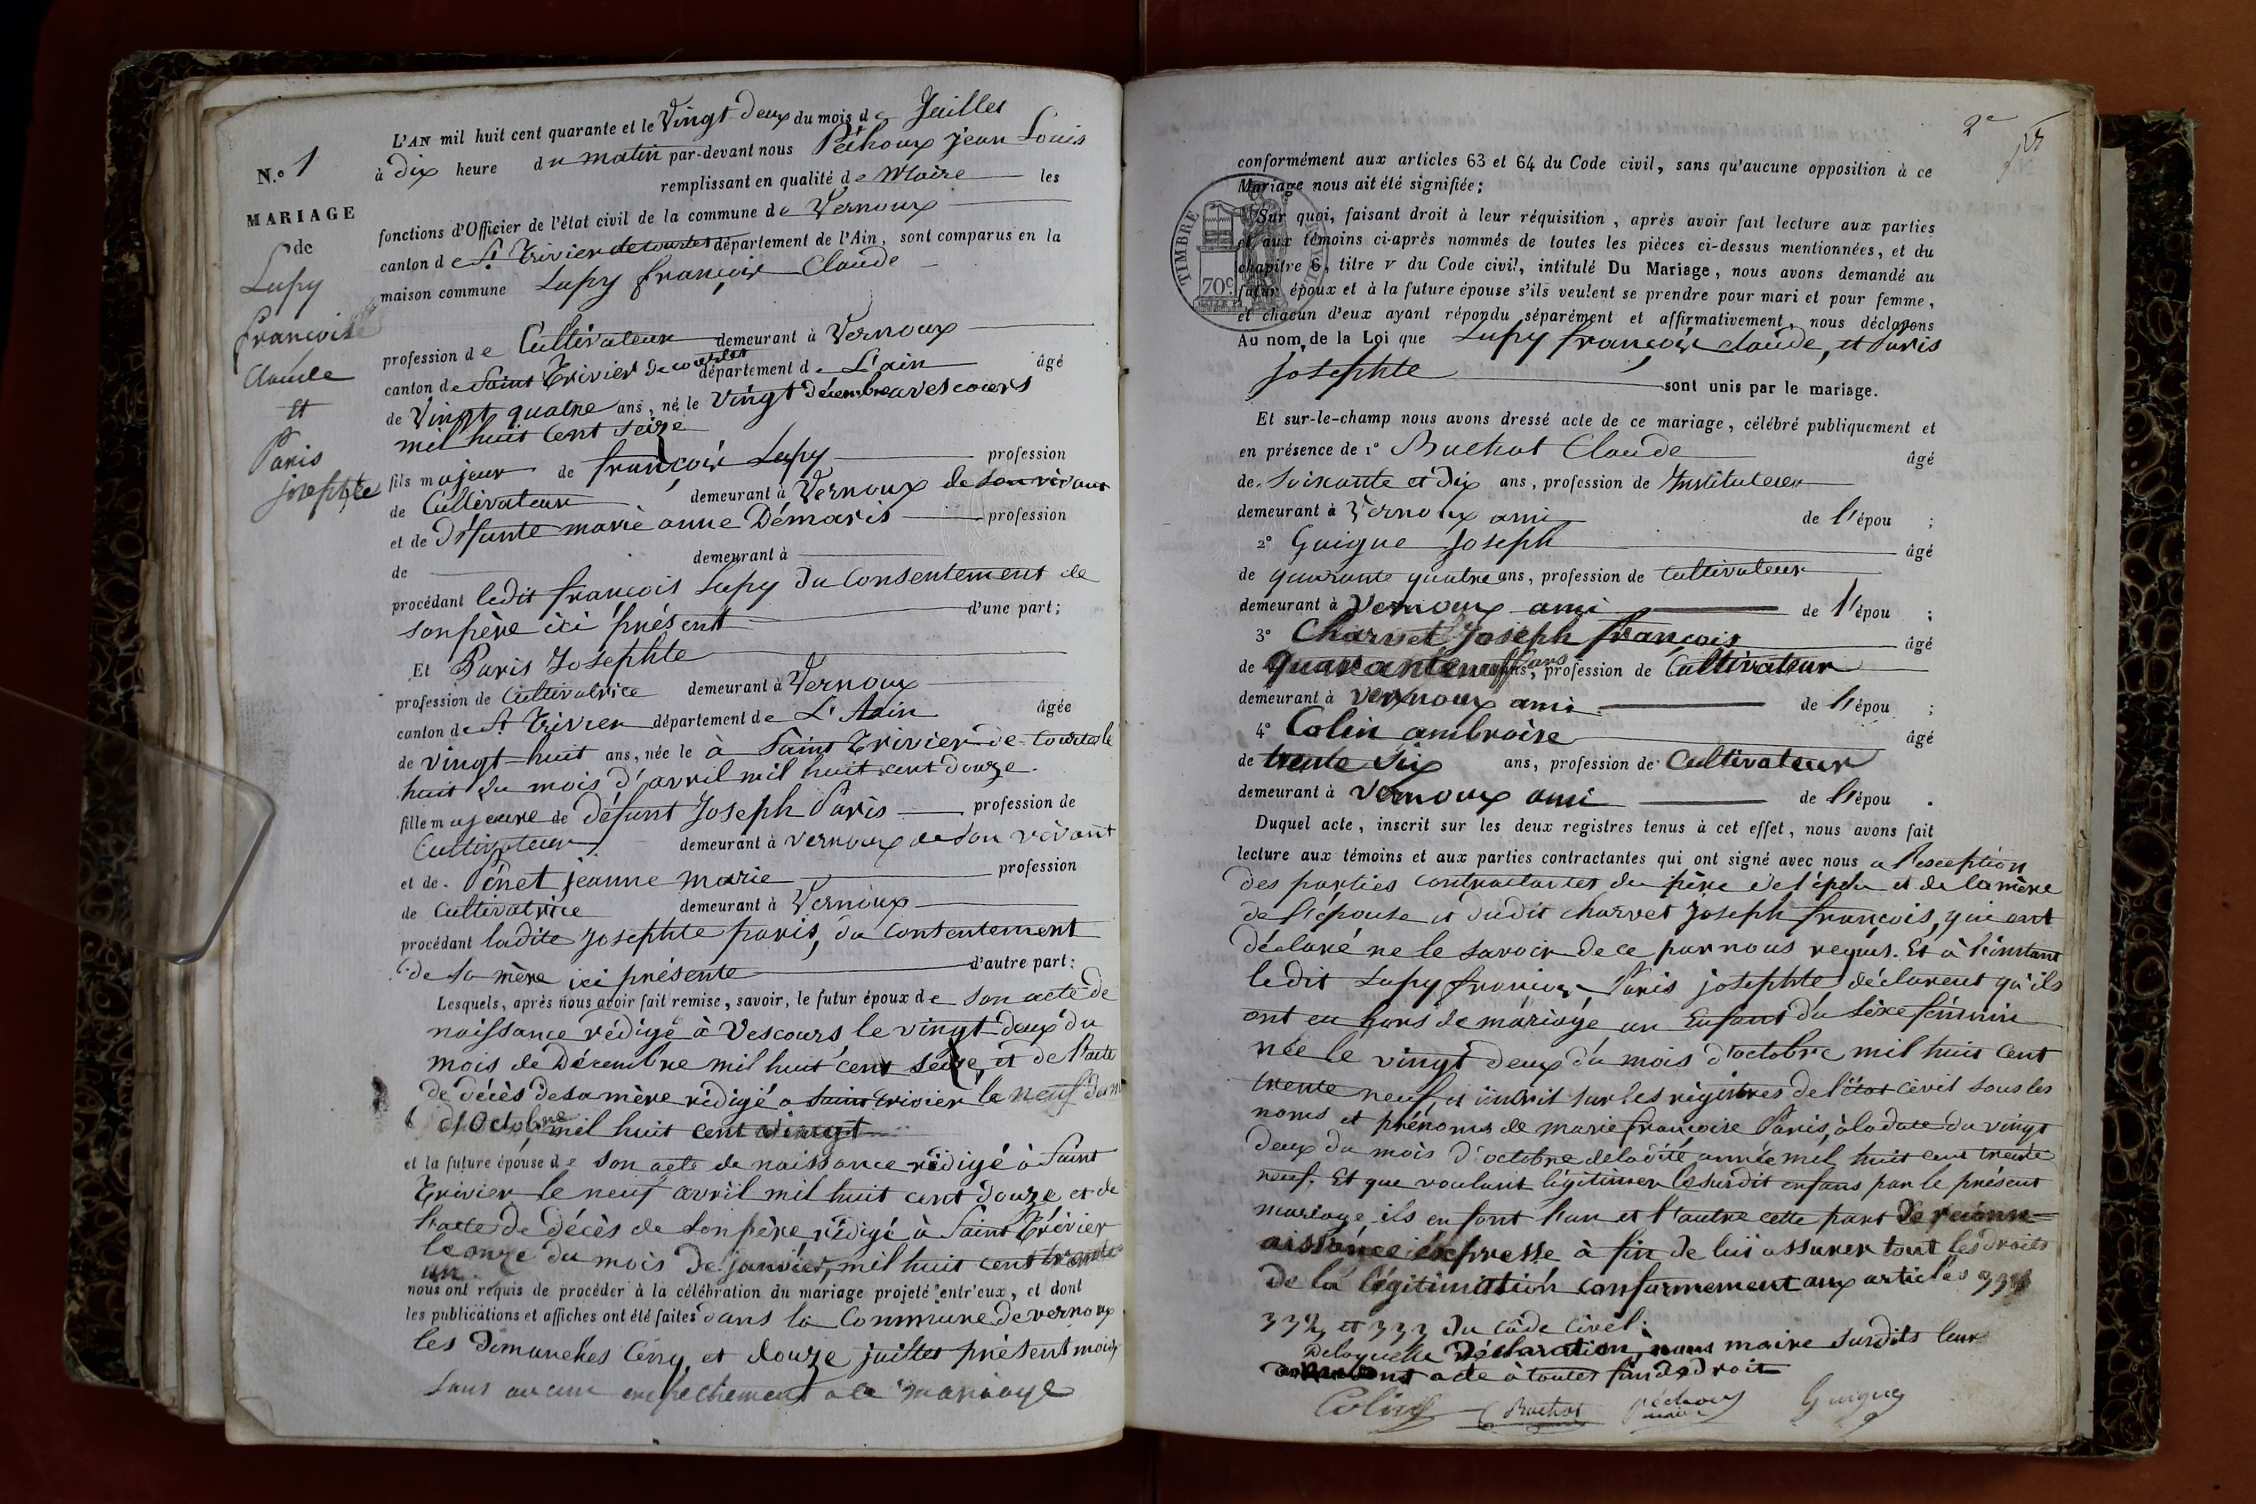 L'AN mil huit cent quarante et le Vingt Deux du mois de Juillet
à dix heure du matin par-devant nous Péchoux Jean Louis
remplissant en qualité de Maire les
fonctions d'Officier de l'état civil de la commune de Vernoux
canton de St Trivier de courtes département de l'Ain, sont comparus en la
maison commune Lupy françois Claude
profession de Cultivateur demeurant à Vernoux
canton de Saint Trivier de courtes département de L'ain âgé
de Vingt quatre ans, né le Vingt décembre a vescours
mil huit cent seize
fils majeur de françois Lupy profession
de Cultivateur demeurant à Vernoux de son vivant
et de Défunte marie anne Démaris profession
de demeurant à
procédant ledit françois Lupy du Consentement de
son père ici présent d'une part;
Et Paris Josephte
profession de Cultivatrice demeurant à Vernoux
canton de St Trivier département de L'Ain âgée
de vingt-huit ans, née le à Saint Trivier de Courtes le
huit du mois d'avril mil huit cent douze
fille majeure de défunt Joseph Paris profession de
Cultivateur demeurant à vernoux de son vivant
et de Pénet jeanne marie profession
de Cultivatrice demeurant à Vernoux
procédant ladite Josephte paris, du Consentement
de sa mère ici présente d'autre part:
Lesquels, après nous avoir fait remise, savoir, le futur époux de son acte de
naissance rédigé à Vescours le vingt-deux du
mois de Décembre mil huit cent seize, et de l'acte
de décès de sa mère rédigé a Saint trivier le neuf du m
d'Octobre mil huit cent vingt
et la future épouse de son acte de naissance rédigé à Saint
Trivier le neuf avril mil huit cent douze et de
l'acte de décès de son père rédigé à Saint Trivier
le onze du mois de janvier, mil huit cent trente
un
nous ont requis de procéder à la célébration du mariage projeté entr'eux, et dont
les publications et affiches ont été faites dans la Commune de vernoux
les dimanches Cinq et douze juillet présent mois
sans aucun empêchement a le mariage
N.o 1
MARIAGE
de
Lupy
françois
Claude
et
Paris
josephte
2e
conformément aux articles 63 et 64 du Code civil, sans qu'aucune opposition à ce
Mariage nous ait été signifiée;
Sur quoi, faisant droit à leur réquisition, après avoir fait lecture aux parties
et aux témoins ci-après nommés de toutes les pièces ci-dessus mentionnées, et du
chapitre 6, titre v du Code civil, intitulé Du Mariage, nous avons demandé au
futur époux et à la future épouse s'ils veulent se prendre pour mari et pour femme,
et chacun d'eux ayant répondu séparément et affirmativement, nous déclarons
Au nom de la Loi que Lupy françois claude, et Paris
Josephte sont unis par le mariage.
TIMBRE
70c
Et sur-le-champ nous avons dressé acte de ce mariage, célébré publiquement et
en présence de 1° Buchot Claude âgé
de Soixante et Dix ans, profession de Instituteur
demeurant à Vernoux ami de l'épou ;
2° Guigue Joseph âgé
de quarante quatre ans, profession de Cultivateur
demeurant à Vernoux ami de l'épou ;
3° Charvet Joseph françois âgé
de quarante neuf ans, profession de Cultivateur
demeurant à vernoux ami de l'épou ;
4° Colin ambroise âgé
de trente Six ans, profession de Cultivateur
demeurant à Vernoux ami de l'épou .
Duquel acte, inscrit sur les deux registres tenus à cet effet, nous avons fait
lecture aux témoins et aux parties contractantes qui ont signé avec nous a l'exception
des parties contractantes du père de l'épou et de la mère
de l'épouse et dudit charvet Joseph françois, qui ont
déclaré ne le savoir de ce par nous requis. Et à l'instant
ledit Lupy françois Paris josephte déclarent qu'ils
ont eu hors de mariage un Enfant du sèxe féminin
née le vingt deux du mois d'octobre mil huit cent
trente neuf, et inscrit sur les registres de l'état civil sous les
noms et prénoms de marie françoise Paris, à la date du vingt
deux du mois d'octobre de la dite année mil huit cent trente
neuf. Et que voulant légitimer le susdit enfans par le présent
mariage ils en font l'un et l'autre cette part de reconn=
aissance expresse à fin de lui assurer tout les droits
de la légitimation conformement aux articles 331
332 et 333 du Code Civil.
De laquelle Déclaration, nous maire susdits leur
donnons acte à toutes fins de droit
Colin Buchot péchoux maire Guigue